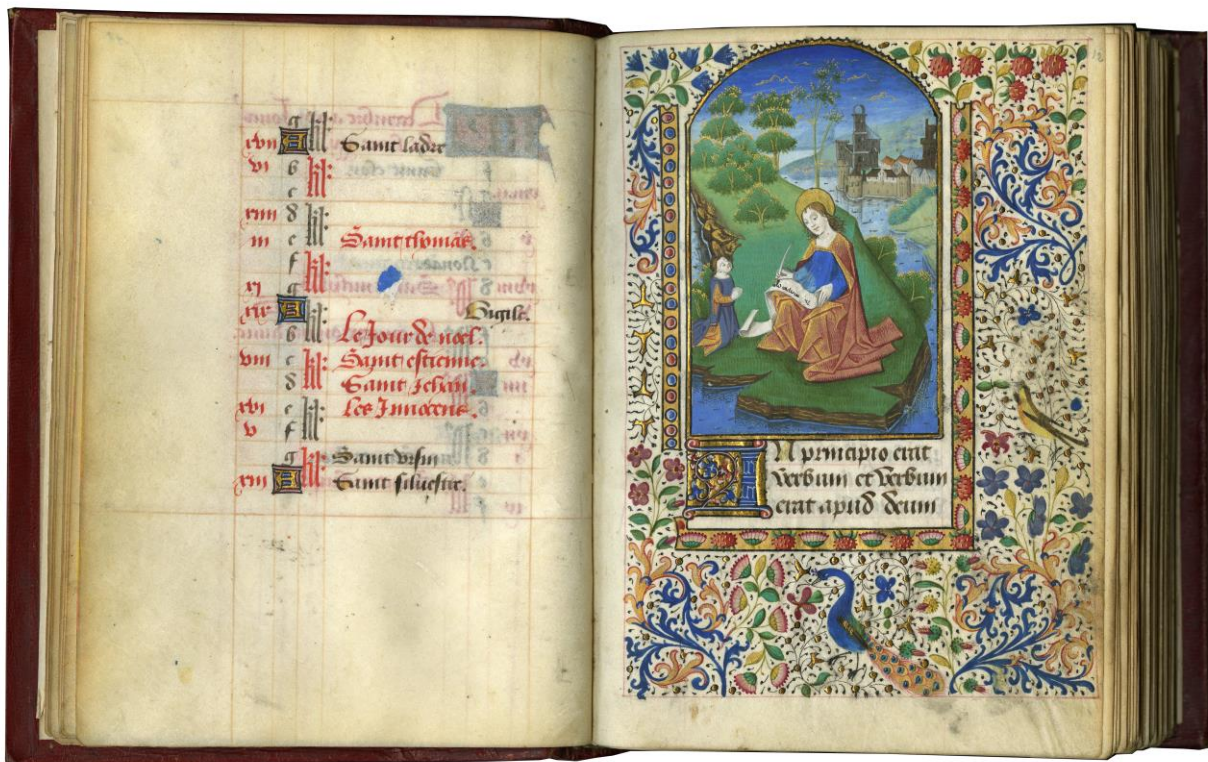 g
xvii A kl Saint ladre
vi b kl:
c
xiiii d kl:
iii e Saint thomas.
f kl:
xi g
xix A kl: Vigile.
b Le Jour de noel.
viii c kl: Saint estienne.
d Saint Jehan.
xvi e kl: Les Innocens.
v f
g kl: Saint vrsin
xiii A Saint siluestre.
IN principio erat
verbum et verbum
erat apud deum